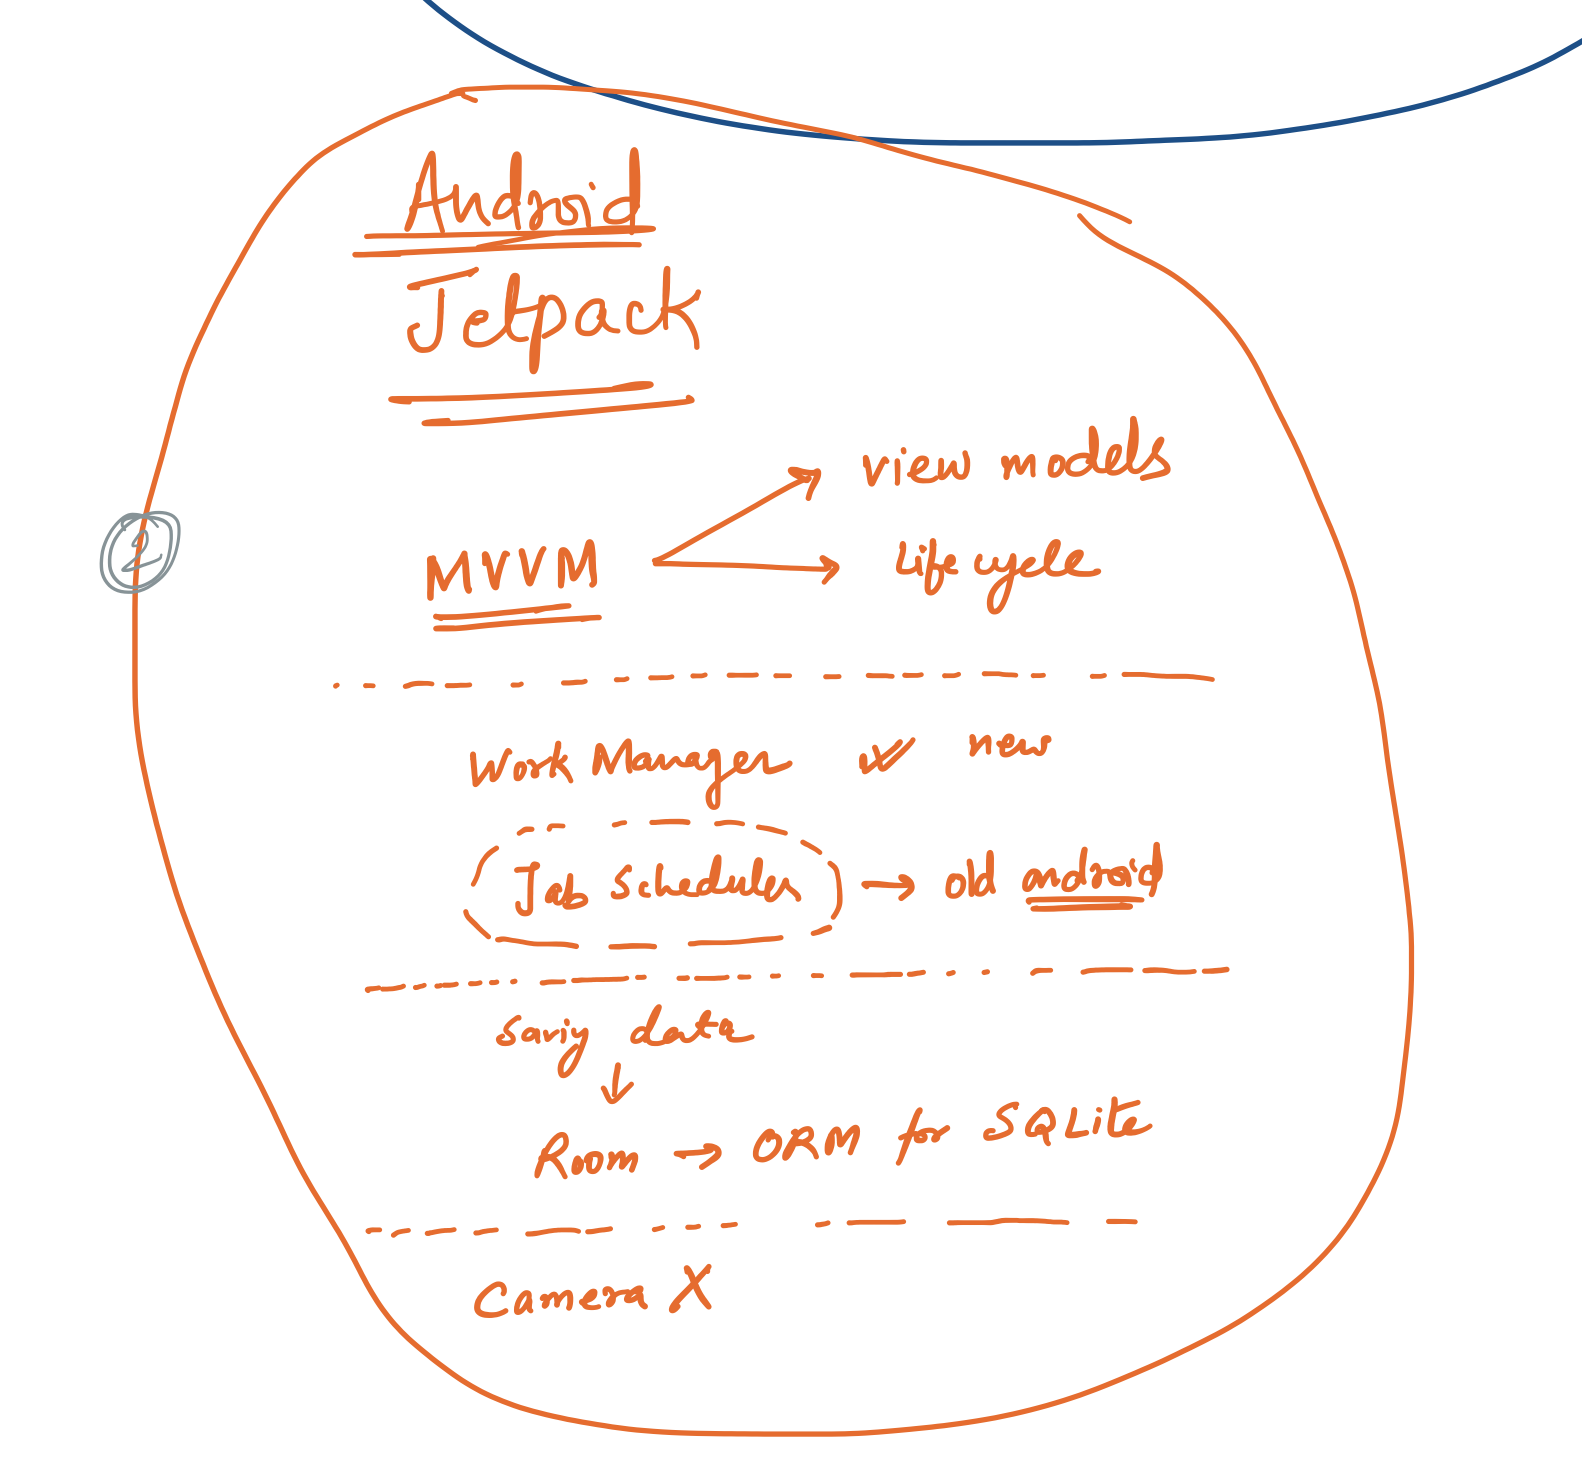 Android
Jetpack
view models
MVVM → Life cycle
②
Work Manager ✓ new
Job Scheduler → old android
Saving data
↓
Room → ORM for SQLite
Camera X